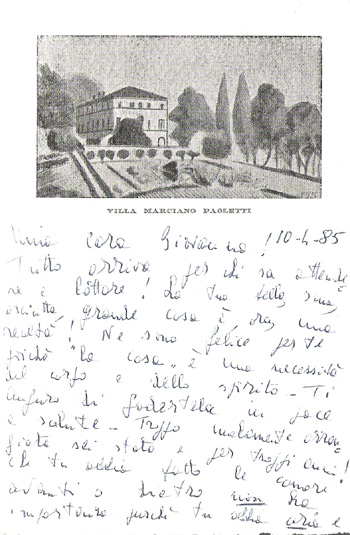 VILLA MARCIANO PAOLETTI
mia cara Giovanna! 10-4-85
Tutto arriva per chi sa attende
re e lottare! La tua bella, sana,
asciutta, grande casa è ora, una
realtà! Ne sono felice per te
poiché "la casa" è una necessità
del corpo e dello spirito - Ti
auguro di godertela in pace
e salute - Troppo malamente arran
giata sei stata e per troppi anni!
che tu abbia fatto le camere
avanti o dietro non ha
importanza purché tu abbia aria e